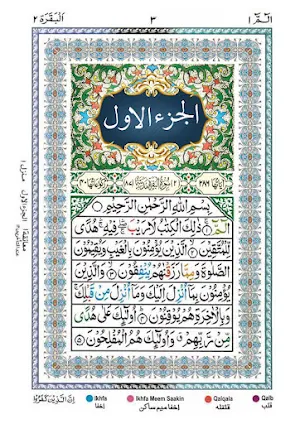 الٓمّٓ ١
٣
اَلْبَقَرَة ٢
الجزء الاول
بِسْمِ اللّٰهِ الرَّحْمٰنِ الرَّحِيْمِ
الٓمّٓ ۚ ذٰلِكَ الْكِتٰبُ لَا رَيْبَ ۛ فِيْهِ ۛ هُدًى
لِّلْمُتَّقِيْنَ الَّذِيْنَ يُؤْمِنُوْنَ بِالْغَيْبِ وَيُقِيْمُوْنَ
الصَّلٰوةَ وَمِمَّا رَزَقْنٰهُمْ يُنْفِقُوْنَ وَالَّذِيْنَ
يُؤْمِنُوْنَ بِمَآ اُنْزِلَ اِلَيْكَ وَمَآ اُنْزِلَ مِنْ قَبْلِكَ
وَبِالْاٰخِرَةِ هُمْ يُوْقِنُوْنَ اُولٰٓئِكَ عَلٰى هُدًى
مِّنْ رَّبِّهِمْ وَاُولٰٓئِكَ هُمُ الْمُفْلِحُوْنَ ٥
منزل ١
الجزء الاول
Ikhfa
اخفا
Ikhfa Meem Saakin
اخفا میم ساکن
Qalqala
قلقله
Qalb
قلب
اِنَّ الَّذِيْنَ كَفَرُوْا